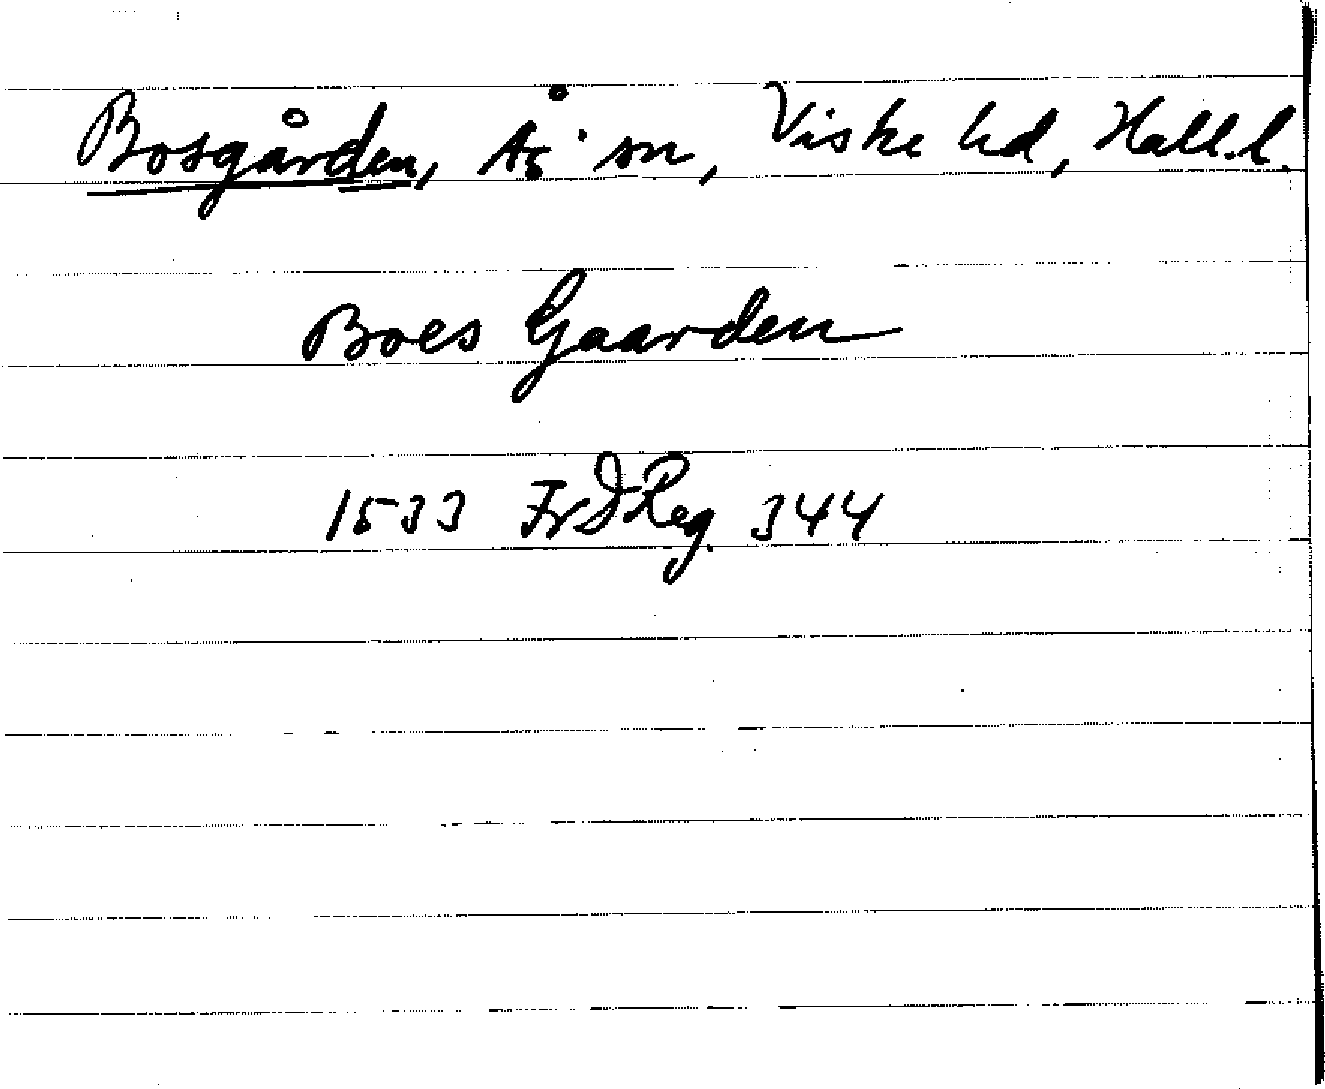 Bosgården, Ås sn, Viske hd, Hall. l.
Boes Gaarden
1533 FrDReg. 344